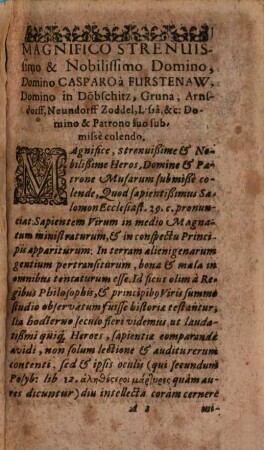 MAGNIFICO STRENUIS-
simo & Nobilissimo Domino,
Domino CASPARO à FURSTENAW,
Domino in Döbschitz, Gruna, Arns-
dorff, Neundorff Zoddel, &c: Do-
mino & Patrono suo sub-
missè colendo.
MAgnifice, strenuissime & No-
bilissime Heros, Domine & Pa-
trone Musarum submissè co-
lende, Quod sapientissimus Sa-
lomon Ecclesiast. 39. c. pronun-
ciat: Sapientem Virum in medio Magna-
tum ministraturum, & in conspectu Princi-
pis appariturum. In terram alienigenarum
gentium pertransiturum, bona & mala in
omnibus tentaturum esse. Id sicut olim à Re-
gibus Philosophis, & principibꝰ Viris summo
studio observatum fuisse historiæ testantur,
ita hodierno seculo fieri videmus, ut lauda-
tissimi quiq; Heroes, sapientiæ comparandæ
avidi, non solum lectione & auditu rerum
contenti, sed & ipsis oculis (qui secundum
Polyb: lib 12. ἀληθέςεροι μάρτυρες quàm au-
res dicuntur) diu intellecta coràm cernere
A 2